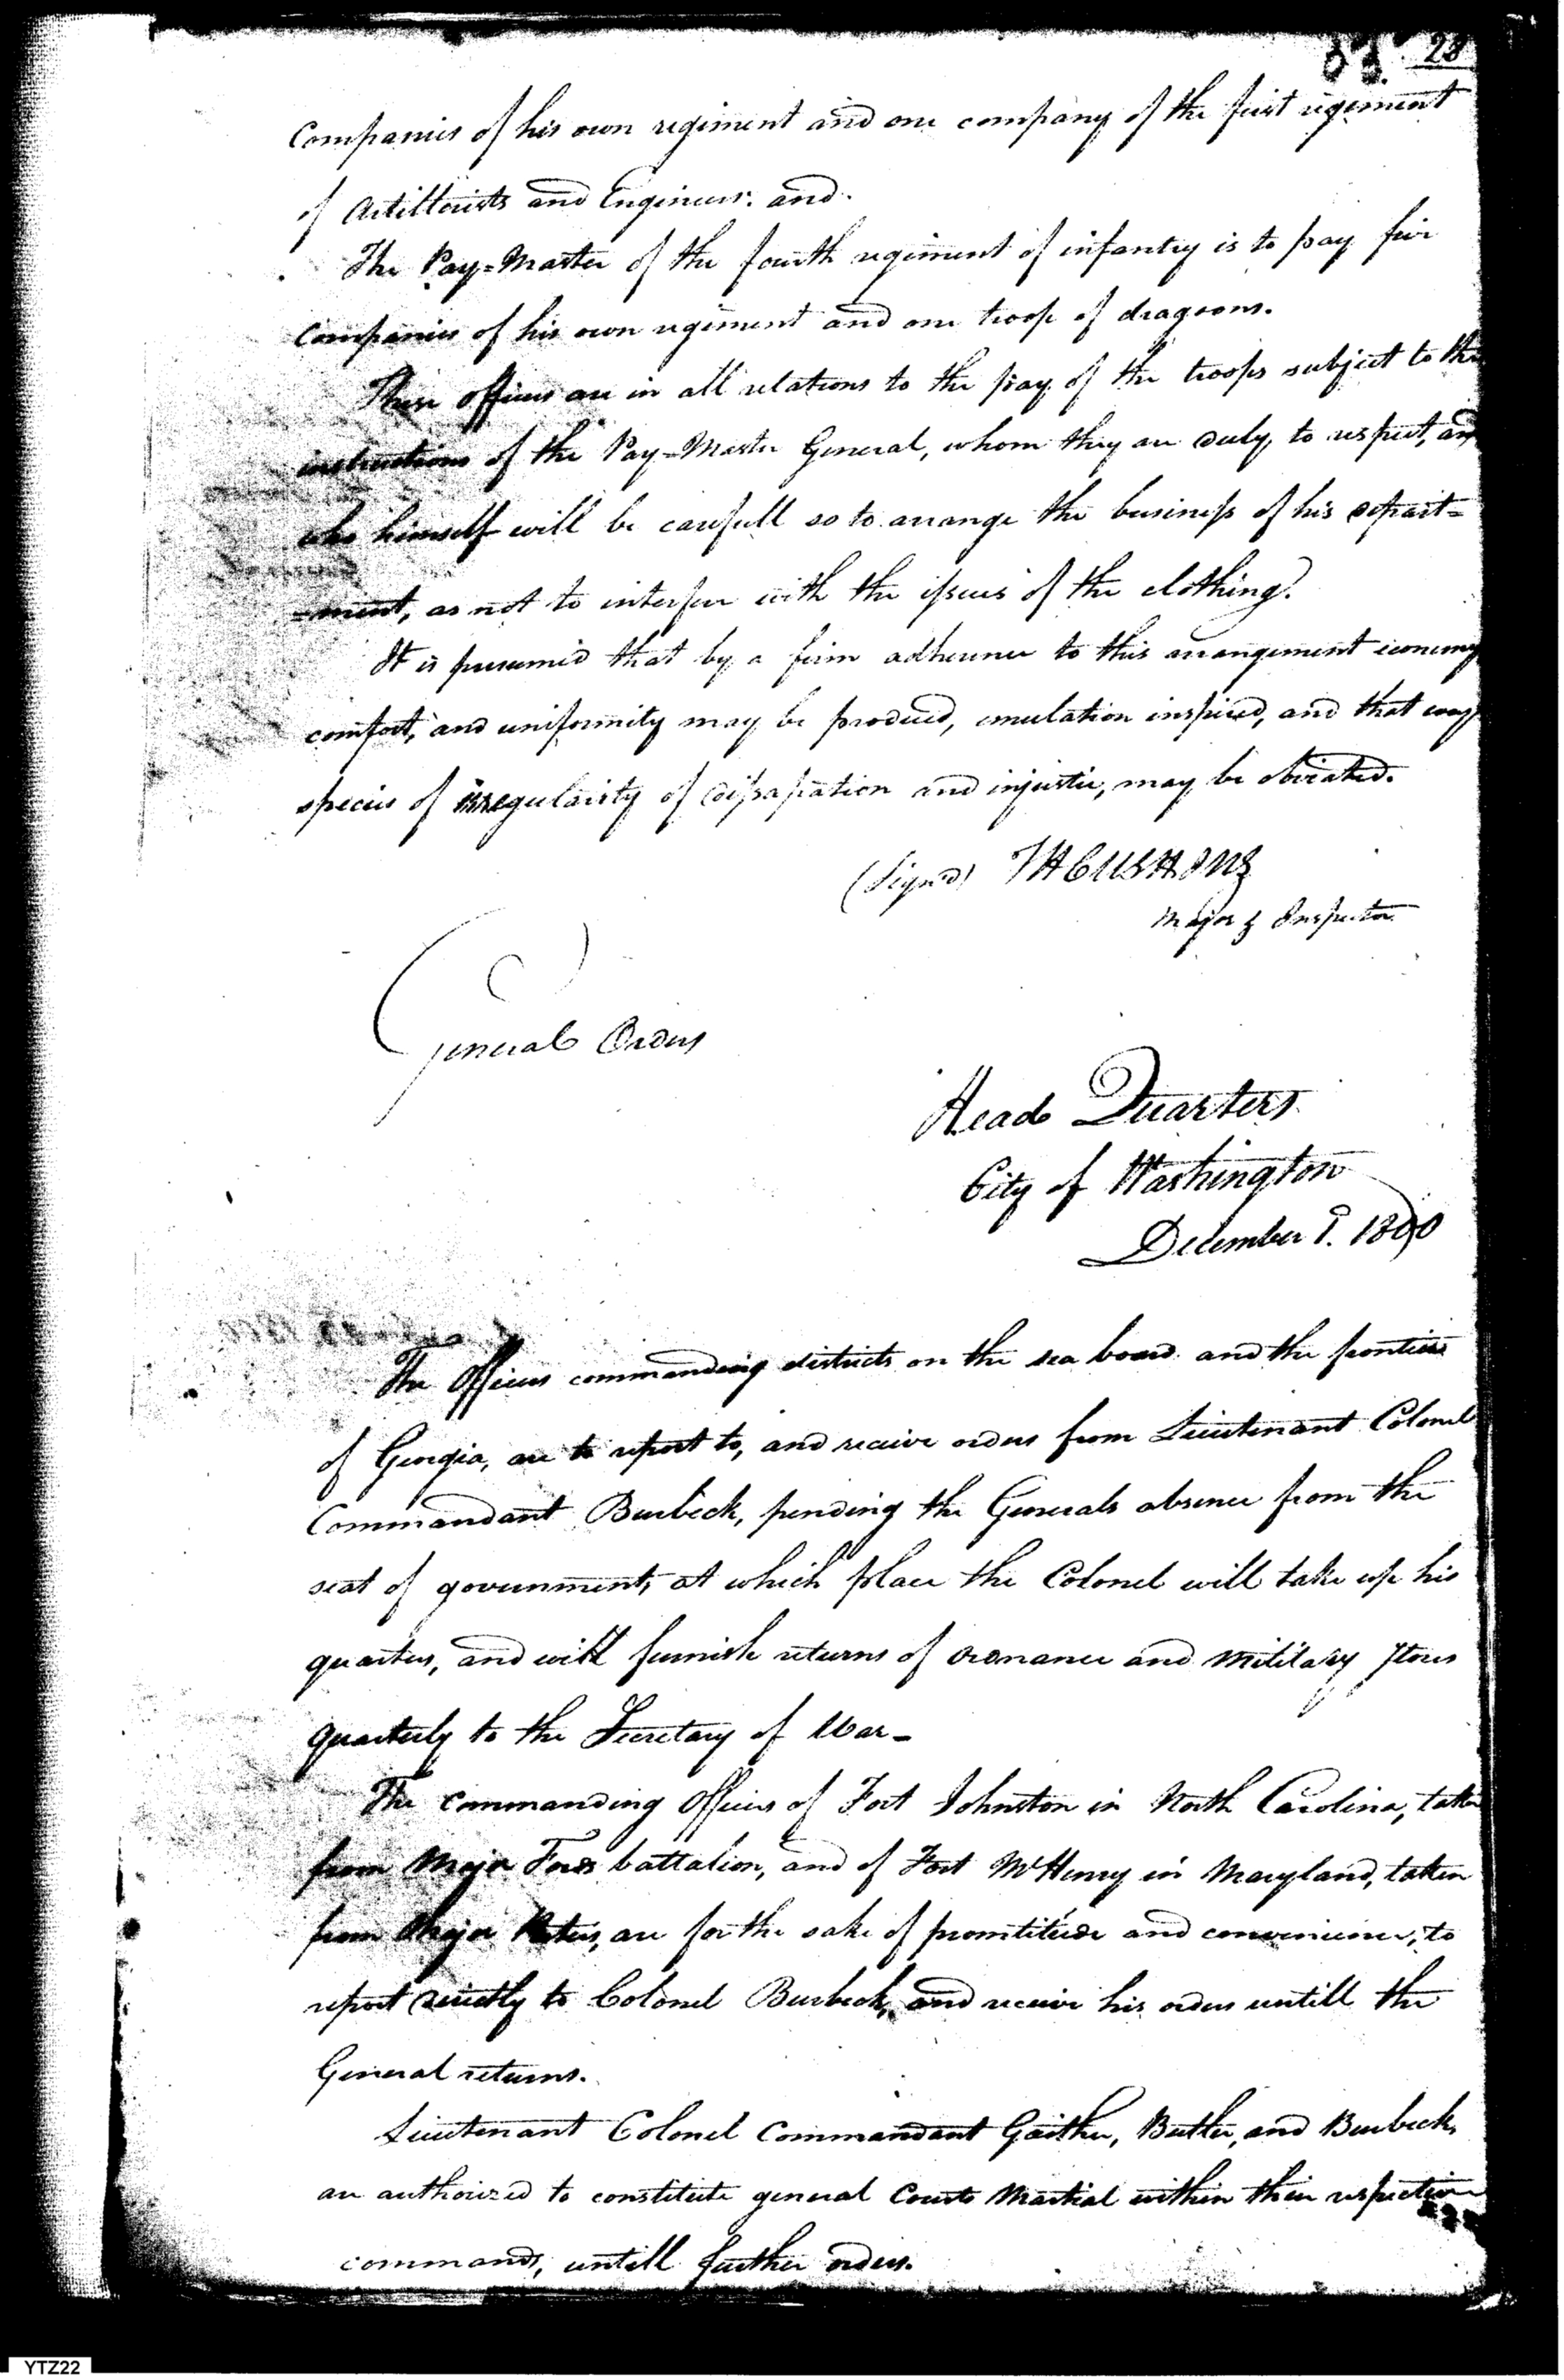 23
Companies of his own regiment and one company of the first regiment
of Artillerists and Engineers. and.
The Pay=Master of the fourth regiment of infantry is to pay five
Companies of his own regiment and one troop of dragoons.
These officers are in all relations to the pay of the troops subject to the
instructions of the Pay=Master General, whom they are duly, to respect, and
who himself will be carefull so to arrange the business of his depart=
=ment, as not to interfere with the issues of the clothing.
It is presumed that by a firm adherence to this arrangement economy
comfort, and uniformity may be produced, emulation inspired, and that every
species of irregularity of dissapation and injustice, may be obviated.
(Signed) T H CUSHING
Major & Inspector
General Orders
Head Quarters
City of Washington
December 1. 1800
The Officers commanding districts on the sea board and the frontiers
of Georgia, are to report to, and receive orders from Lieutenant Colonel
Commandant Burbeck, pending the Generals absence from the
seat of government, at which place the Colonel will take up his
quarters, and will furnish returns of Ordnance and Military Stores
quarterly to the Secretary of War -
The commanding Officers of Fort Johnston in North Carolina, taken
from Major Fords battalion, and of Fort McHenry in Maryland, taken
from Major are for the sake of promtitude and convenience, to
report directly to Colonel Burbeck, and receive his orders untill the
General returns.
Lieutenant Colonel Commandant Gaither, Butler, and Burbeck,
are authorized to constitute general Courts Martial within their respective
commands, untill further orders.
YTZ22